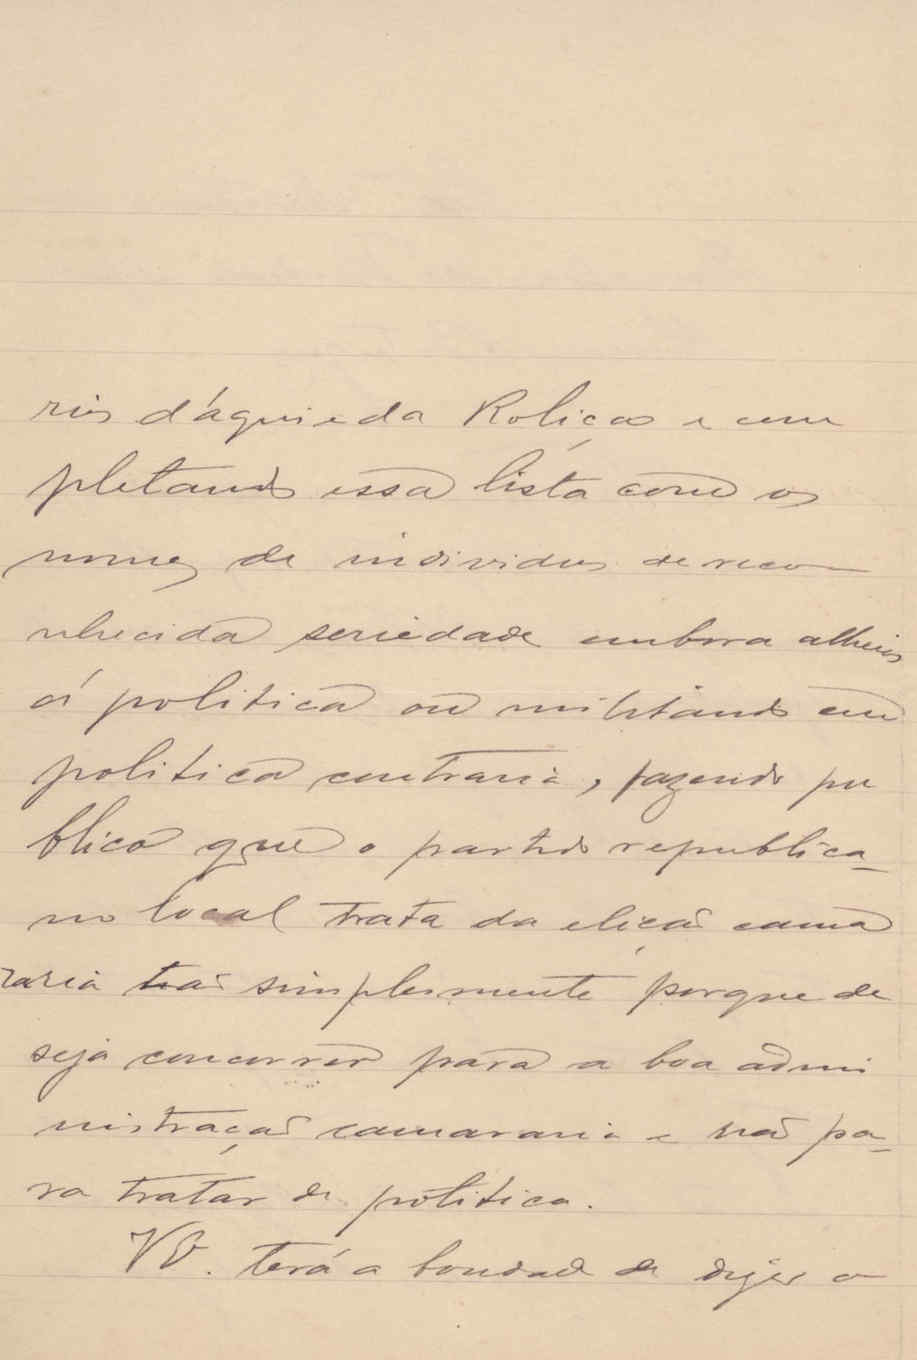 rios d'aqui e da Roliça e com
pletando essa lista com os
nomes de individuos de reco-
nhecida seriedade embora alheios
á politica ou militando em
politica contraria, fazendo pu
blico que o partido republica-
no local trata da eleição cama
raria tão simplesmente porque de
seja concorrer para a boa admi
nistração camararia e não pa-
ra tratar de politica.
VÊ. terá a bondade de dizer o